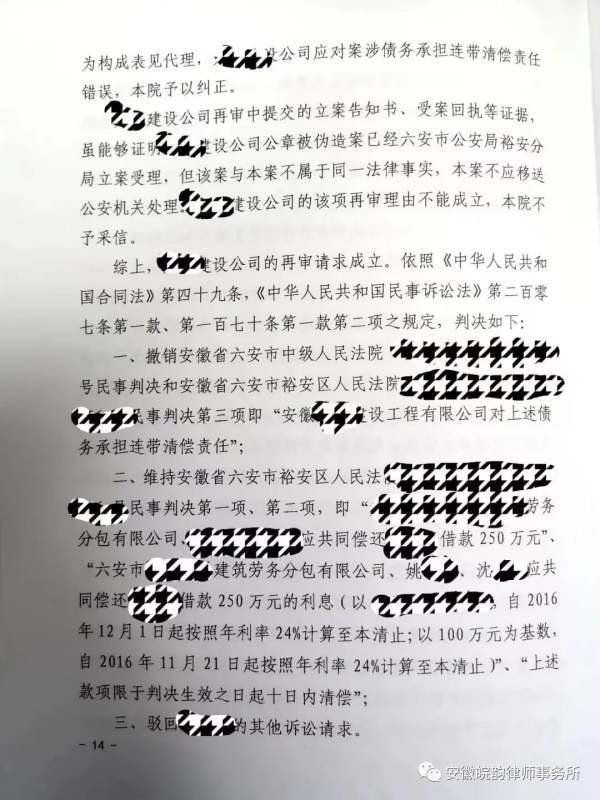 为构成表见代理，设公司应对案涉债务承担连带清偿责任
错误，本院予以纠正。
建设公司再审中提交的立案告知书、受案回执等证据，
虽能够证明建设公司公章被伪造案已经六安市公安局裕安分
局立案受理，但该案与本案不属于同一法律事实，本案不应移送
公安机关处理。建设公司的该项再审理由不能成立，本院不
予采信。
综上，建设公司的再审请求成立。依照《中华人民共和
国合同法》第四十九条，《中华人民共和国民事诉讼法》第二百零
七条第一款、第一百七十条第一款第二项之规定，判决如下：
一、撤销安徽省六安市中级人民法院
号民事判决和安徽省六安市裕安区人民法院
民事判决第三项即“安徽建设工程有限公司对上述债
务承担连带清偿责任”；
二、维持安徽省六安市裕安区人民法院
号民事判决第一项、第二项，即“劳务
分包有限公司、应共同偿还借款250万元”、
“六安市建筑劳务分包有限公司、姚、沈应共
同偿还借款250万元的利息（以，自2016
年12月1日起按照年利率24%计算至本清止；以100万元为基数，
自2016年11月21日起按照年利率24%计算至本清止）”、“上述
款项限于判决生效之日起十日内清偿”；
三、驳回的其他诉讼请求。
- 14 -
安徽皖韵律师事务所